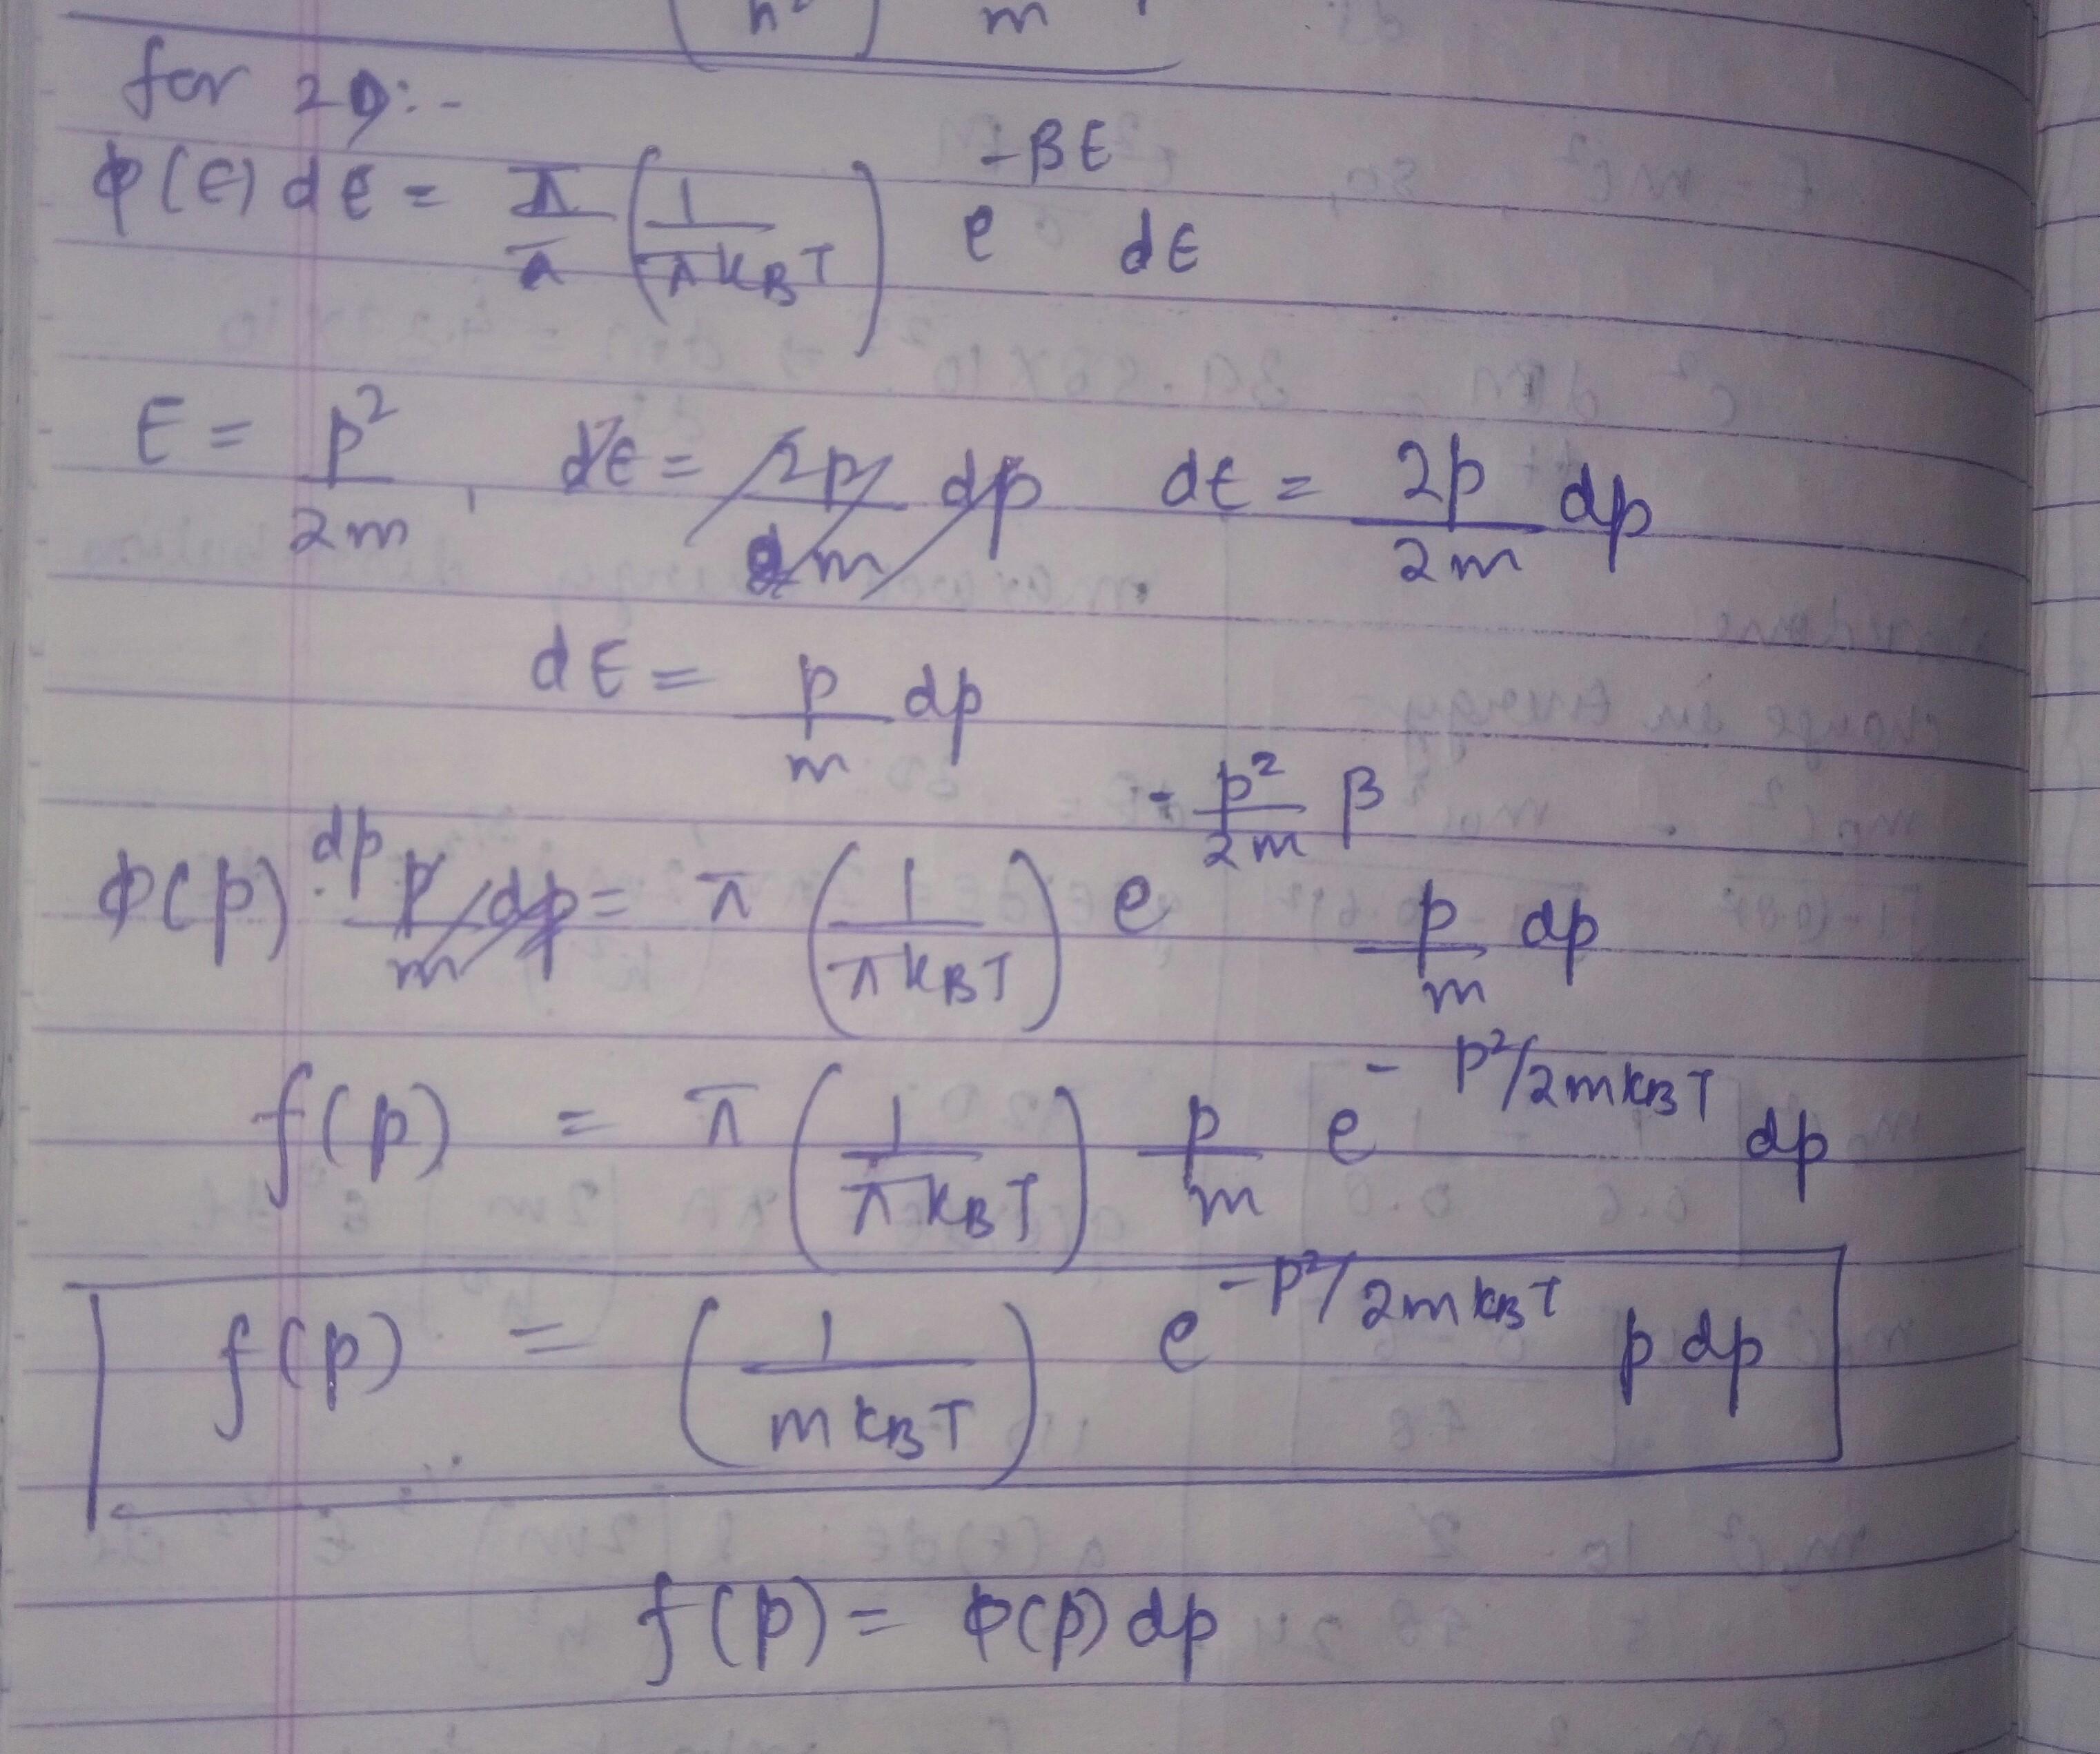 h² m
for 2D:-
ϕ(E) dE = π (1/πk_BT) e^{-βE} dE
E = p²/2m, dE = 2p/2m dp dE = 2p/2m dp
dE = p/m dp
ϕ(p) dp p/m dp = π (1/πk_BT) e^{-p²/2m β} p/m dp
f(p) = π (1/πk_BT) p/m e^{-p²/2mk_BT} dp
f(p) = (1/mk_BT) e^{-p²/2mk_BT} p dp
f(p) = ϕ(p) dp